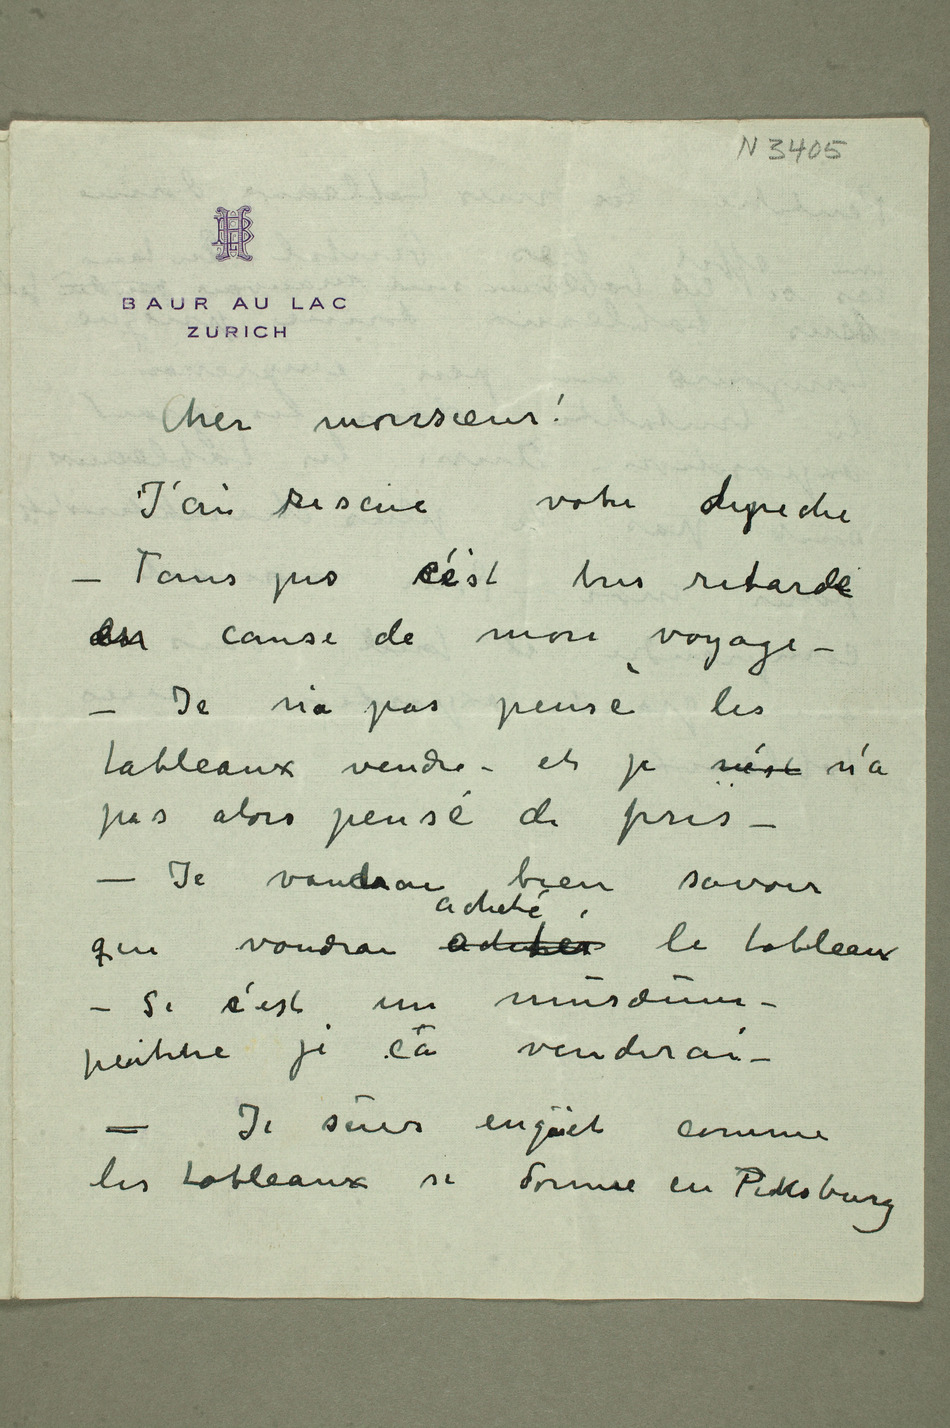 N 3405
HB
BAUR AU LAC
ZÜRICH
Cher monsieur!
J'ai resçue votre depeche
– Tans pis c'ést tres retardé
en cause de mon voyage –
– Je n'a pas pensé les
tableaux vendre – et je n'ést n'a
pas alors pensé de pris –
– Je voudrai bien savoir
acheté
qui voudrai acheter le tableau
– Si c'est un musæum –
peutttre je ca venderai –
– Je suis enqiet comme
les tableaux se donne en Pittsburg